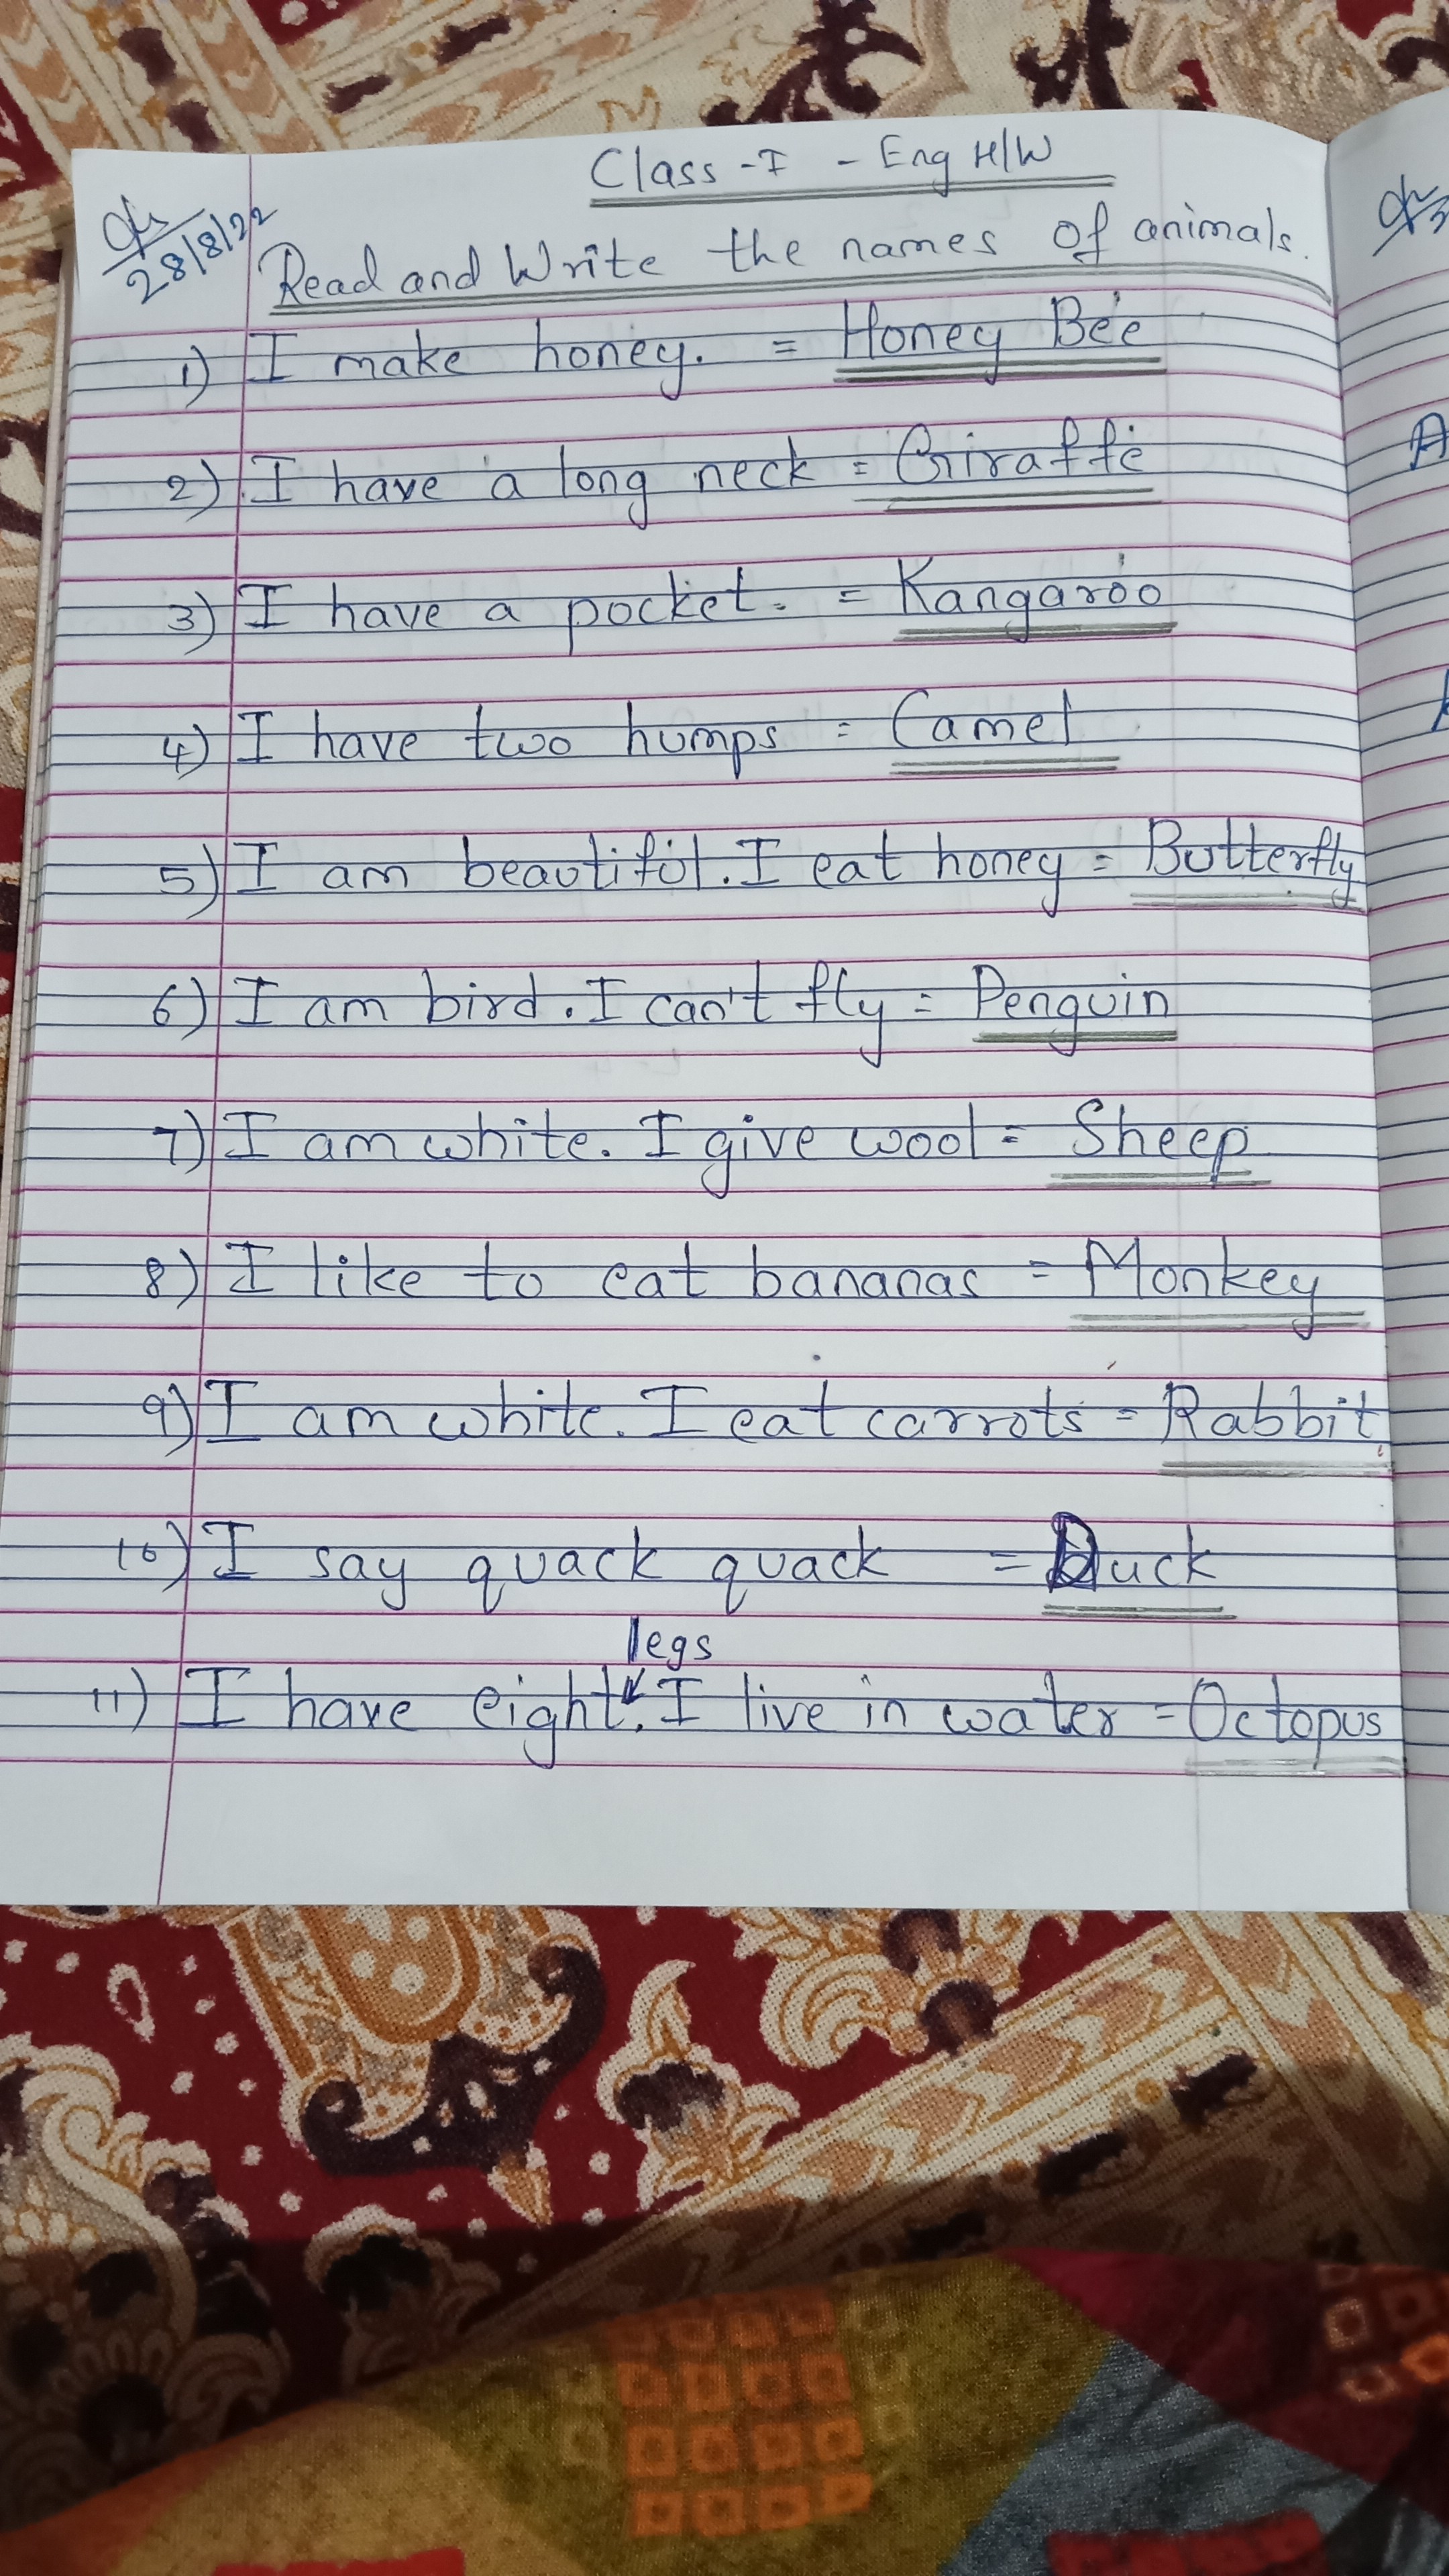 Class -I - Eng H/W
28/8/22
Read and Write the names of animals.
1) I make honey. = Honey Bee
2) I have a long neck = Giraffe
3) I have a pocket. = Kangaroo
4) I have two humps = Camel
5) I am beautiful. I eat honey = Butterfly
6) I am bird. I can't fly = Penguin
7) I am white. I give wool = Sheep
8) I like to eat bananas = Monkey
9) I am white. I eat carrots = Rabbit
10) I say quack quack = Duck
legs
11) I have eight. I live in water = Octopus